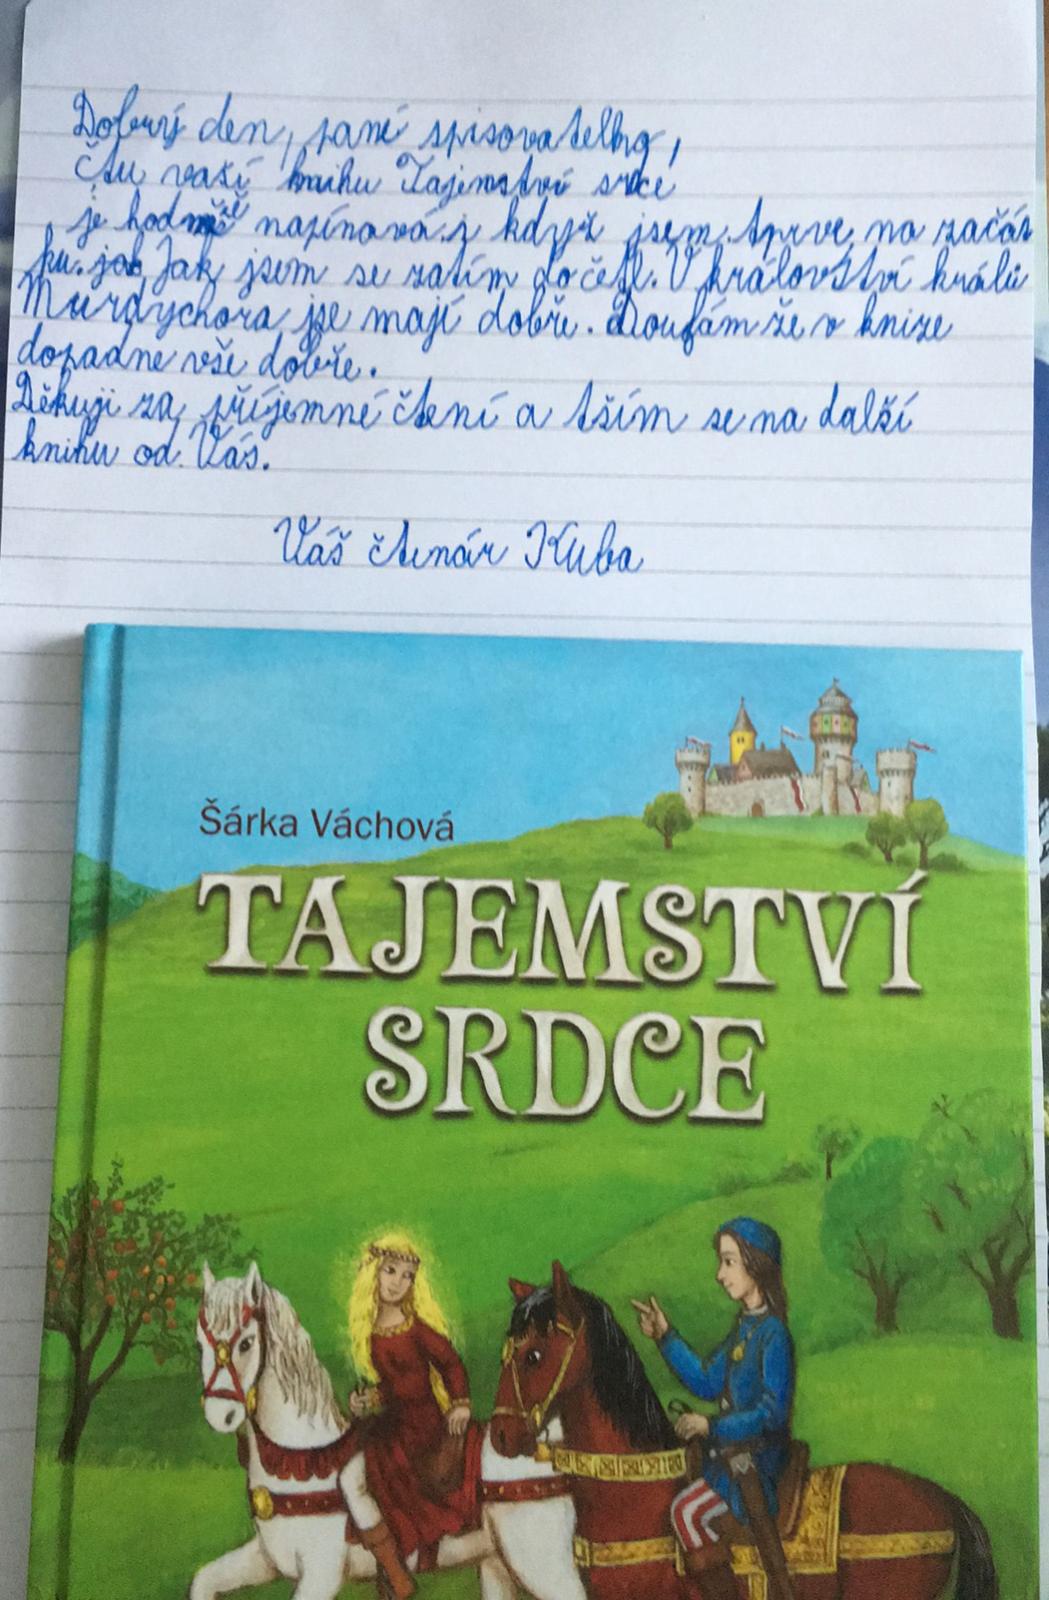 Dobrý den, paní spisovatelko,
čtu vaší knihu Tajemství srdce
je hodně napínavá i když jsem teprve na začát
ku. jak Jak jsem se zatím dočetl. V království králů
Murdychora jse mají dobře. Doufám že v knize
dopadne vše dobře.
Děkuji za příjemné čtení a těším se na další
knihu od Vás.
Váš čtenár Kuba
Šárka Váchová
TAJEMSTVÍ
SRDCE